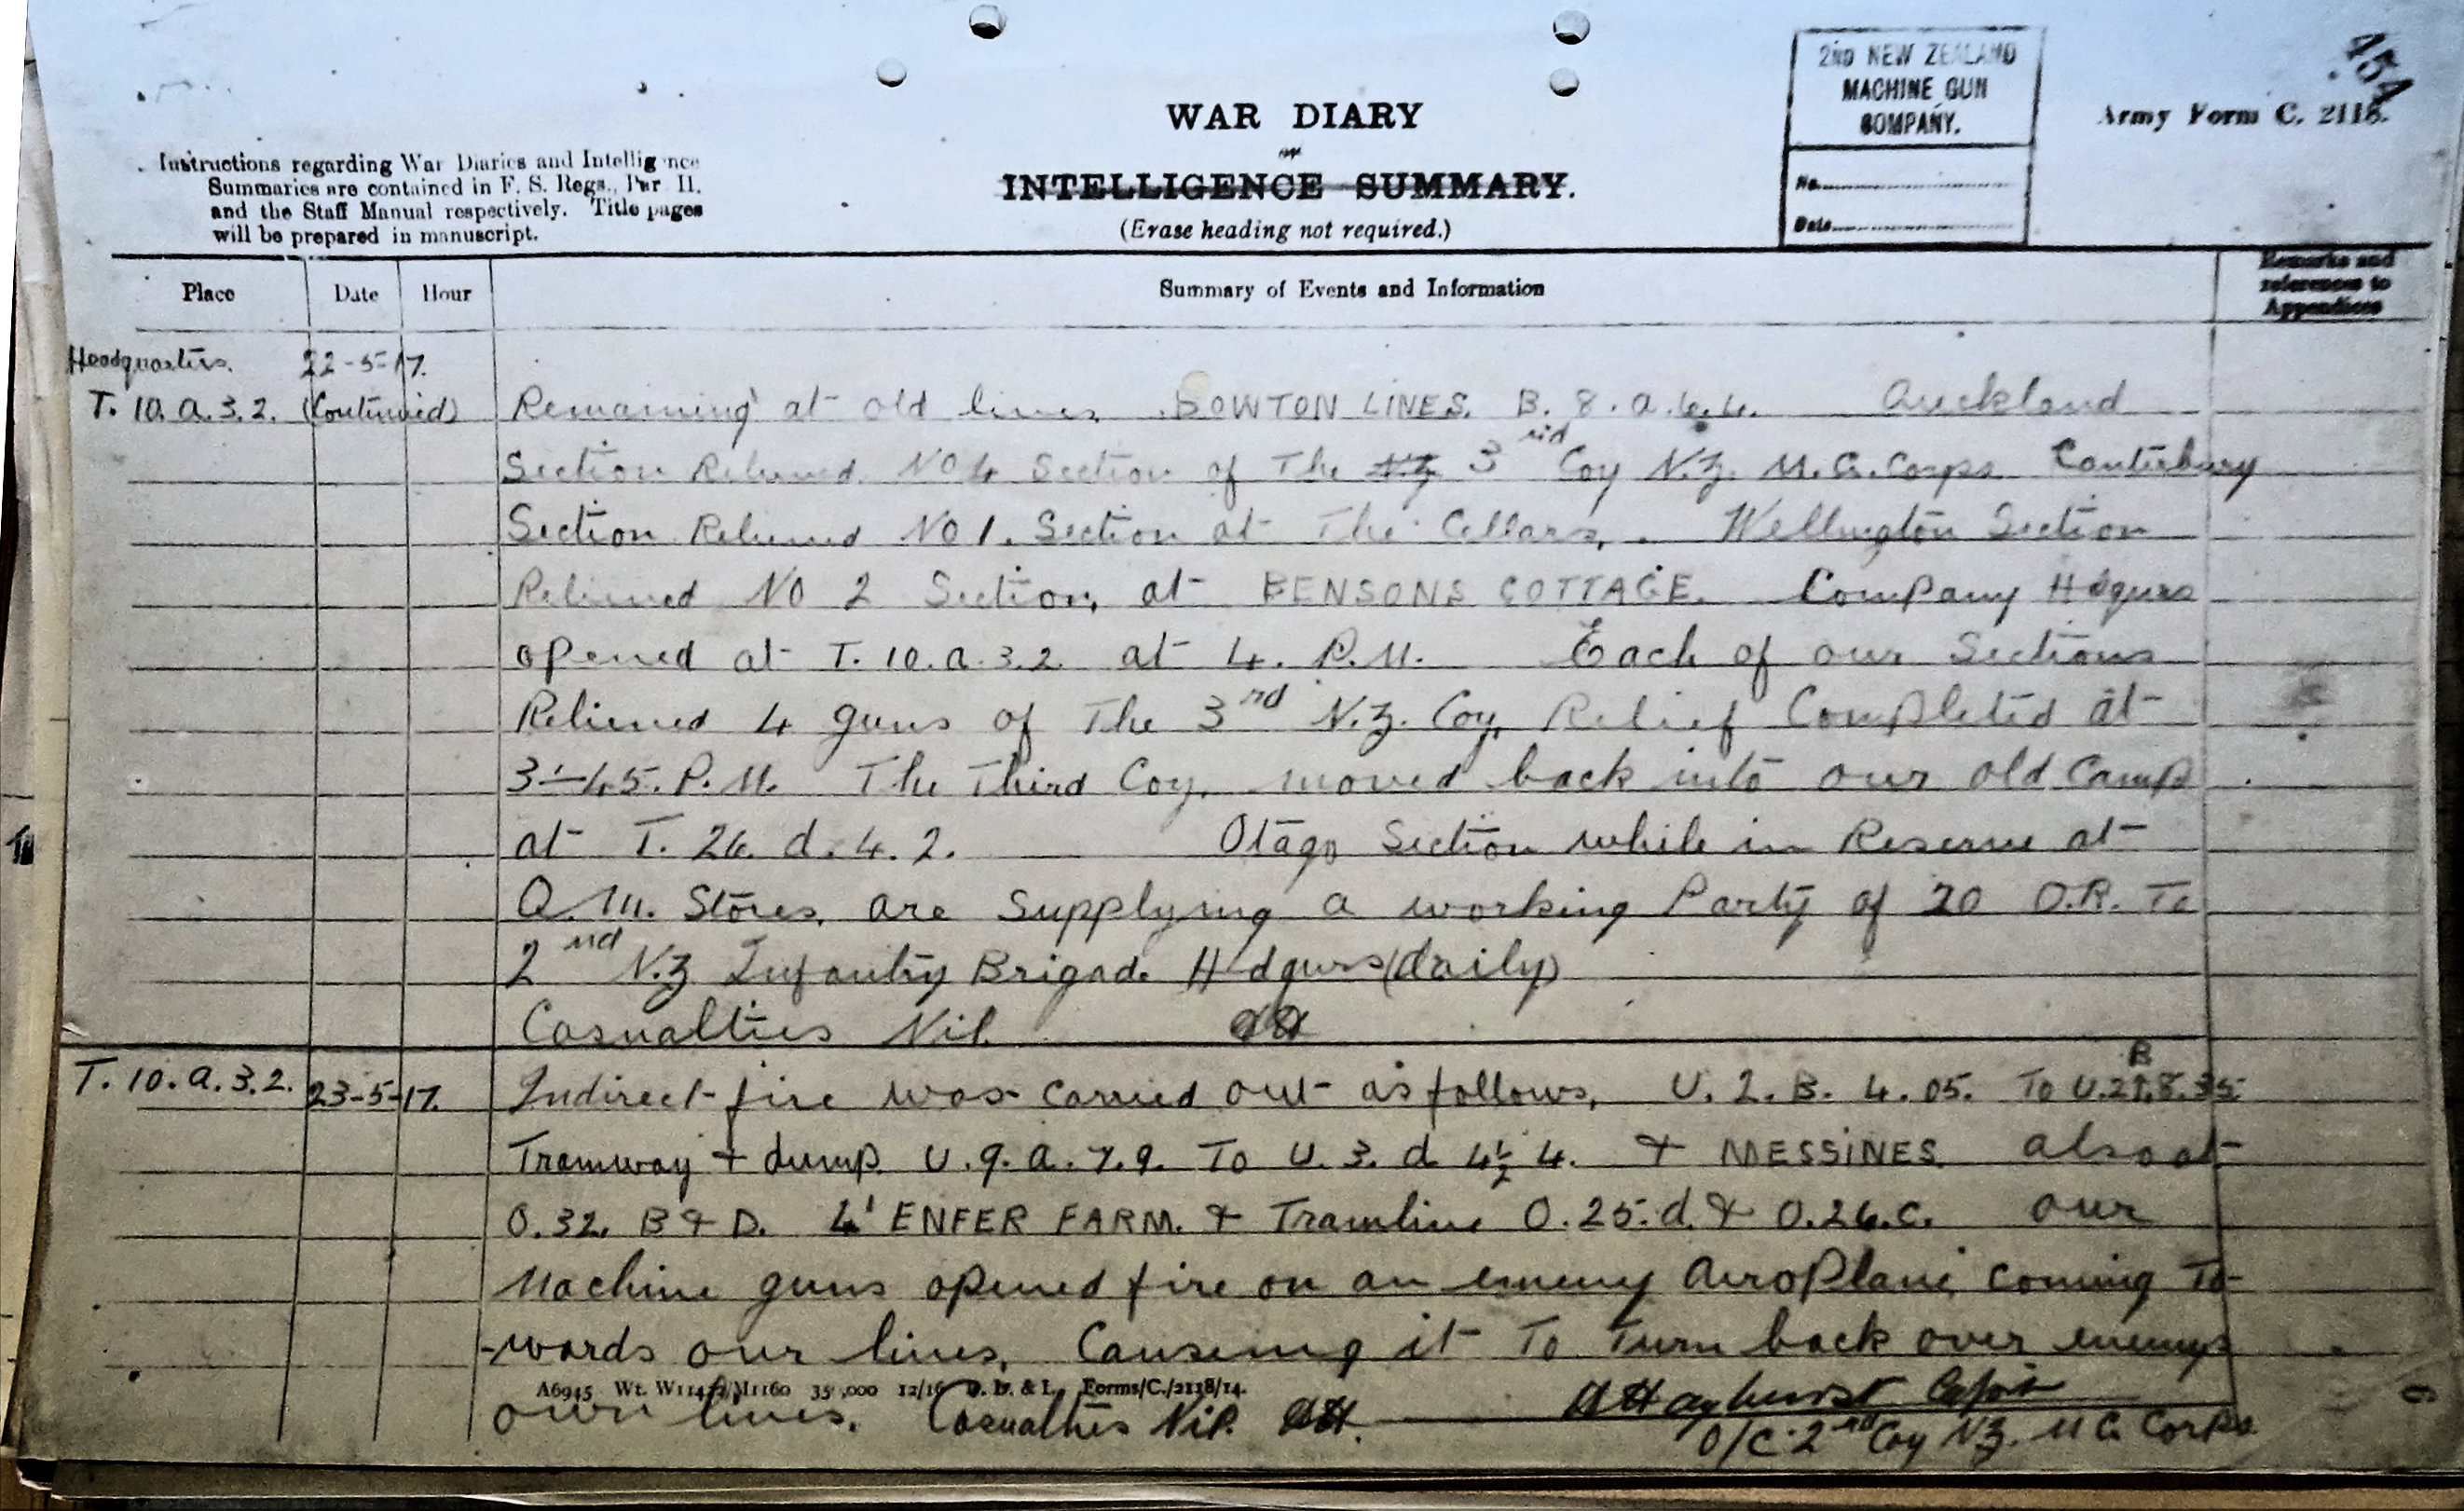 2ND NEW ZEALAND
MACHINE GUN
COMPANY.
No.
Date
45A
Army Form C. 2118.
WAR DIARY
or
INTELLIGENCE SUMMARY.
(Erase heading not required.)
Instructions regarding War Diaries and Intelligence
Summaries are contained in F. S. Regs., Par II.
and the Staff Manual respectively. Title pages
will be prepared in manuscript.
Place Date Hour Summary of Events and Information Remarks and references to Appendices
Headquarters. 22-5-17.
T. 10. a. 3. 2. (Continued) Remaining at old lines. BOWTON LINES. B. 8. a. 4.4. Auckland
Section Relieved No 4 Section of The N.Z 3rd Coy N.Z. M.G. Corps Canterbury
Section Relieved No 1. Section at The Cellars, Wellington Section
Relieved No 2 Section, at BENSONS COTTAGE. Company Hdqurs
opened at T. 10. a. 3. 2. at 4. P.M. Each of our Sections
Relieved 4 guns of The 3rd N.Z. Coy, Relief Completed at
3-45. P.M. The Third Coy. moved back into our old Camp
at T. 26. d. 4. 2. Otago Section while in Reserve at
Q.M. Stores, are Supplying a working Party of 20 O.R. To
2nd N.Z Infantry Brigade Hdqurs (daily)
Casualties Nil. AH
T. 10. a. 3. 2. 23-5-17. Indirect fire was carried out as follows, U. 2. B. 4. 05. To U.2.B.8.35
Tramway + dump. U. 9. a. 7. 9. To U. 3. d 4½ 4. & MESSINES. also at
O. 32. B & D. L'ENFER FARM. & Tramline O. 25. d. & O. 26. c. our
Machine guns opened fire on an enemy AeroPlane coming To-
-wards our lines, Causeing it To Turn back over enemys
A6945 Wt. 35,000 12/16 D. D. & L. Forms/C./2118/14.
own lines. Casualties Nil. AH. AHayhurst Capt
O/C. 2nd Coy NZ. M G Corps